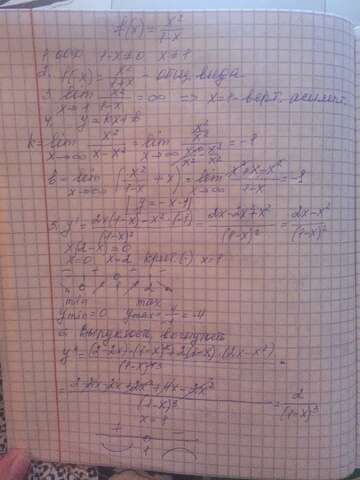 f(x) = x²/1-x
1. ООФ 1-x≠0 x≠1
2. f(-x) = x²/1+x - общ. вида
3. lim x→1 x²/1-x = ∞ => x=1 - верт. асимпт
4. y = kx+b
k = lim x→∞ x²/x-x² = lim x→∞ = -1
b = lim x→∞ (x²/1-x + x) = lim x→∞ x²+x-x²/1-x = -1
y = -x-1
5. y' = 2x(1-x)-x²·(-1)/(1-x)² = 2x-2x²+x²/(1-x)² = 2x-x²/(1-x)²
x(2-x)=0
x=0 x=2 крит.(·) x=1
- + + -
0 1 2
min max
ymin=0 ymax= 4/-1 = -4
6. Выпуклость, вогнутость
y'' = (2-2x)·(1-x)²+2(1-x)·(2x-x²)/(1-x)⁴ =
= 2-2x-2x+2x²+4x-2x²/(1-x)³ = 2/(1-x)³
x=1
+ -
1